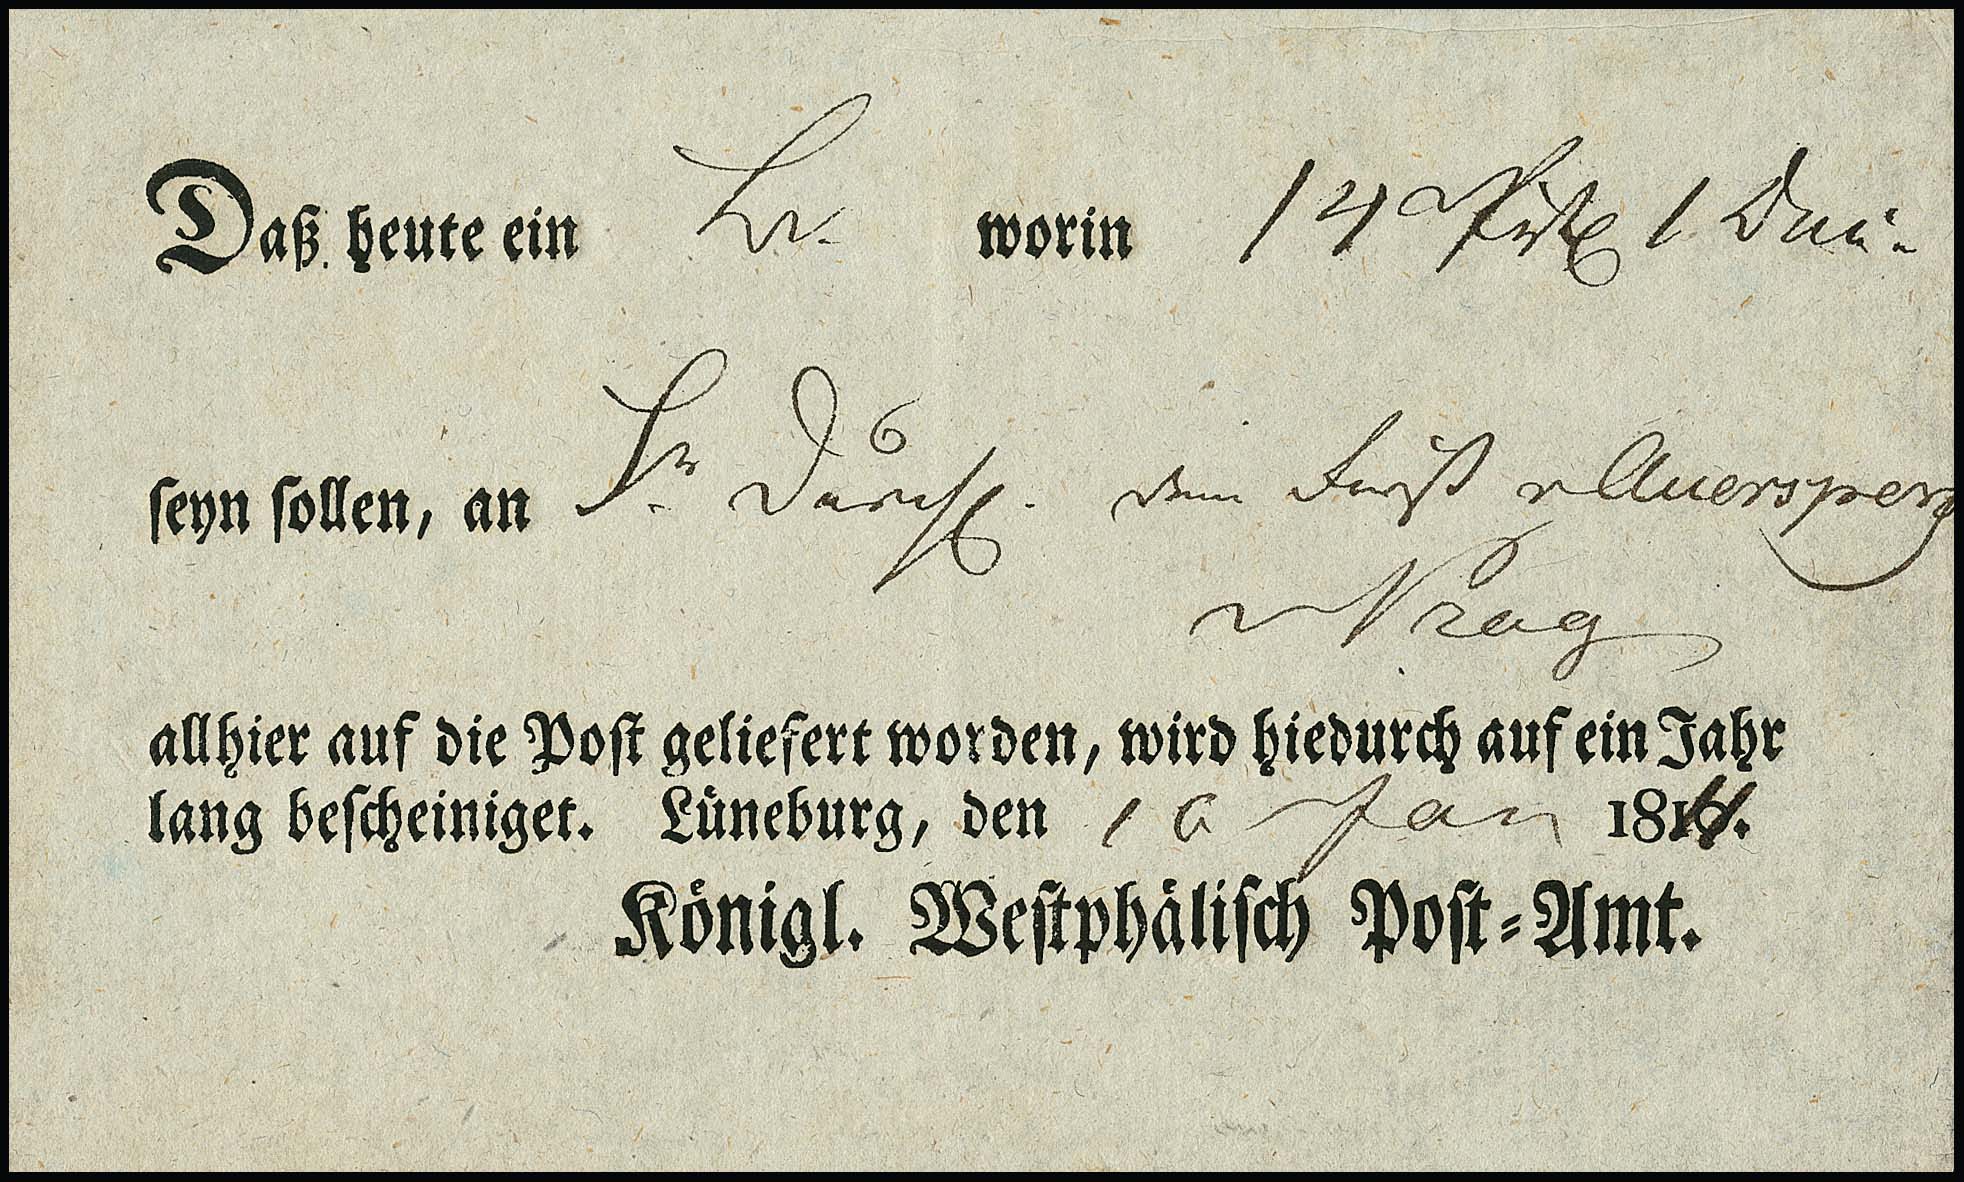 Daß heute ein Br. worin 14 Pist 1 Duc.
seyn sollen, an Sr. Durchl. dem Fürst v Auersperg
Prag
allhier auf die Post geliefert worden, wird hiedurch auf ein Jahr
lang bescheiniget. Lüneburg, den 16 Jan 1811.
Königl. Westphälisch Post-Amt.